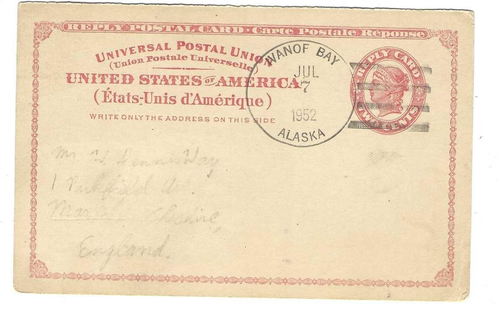 REPLY POSTAL CARD - Carte Postale Réponse.
UNIVERSAL POSTAL UNION
(Union Postale Universelle)
UNITED STATES OF AMERICA
(États-Unis d'Amérique)
WRITE ONLY THE ADDRESS ON THIS SIDE
IVANOF BAY
JUL
7
1952
ALASKA
REPLY CARD
TWO CENTS
Mr
1
England.